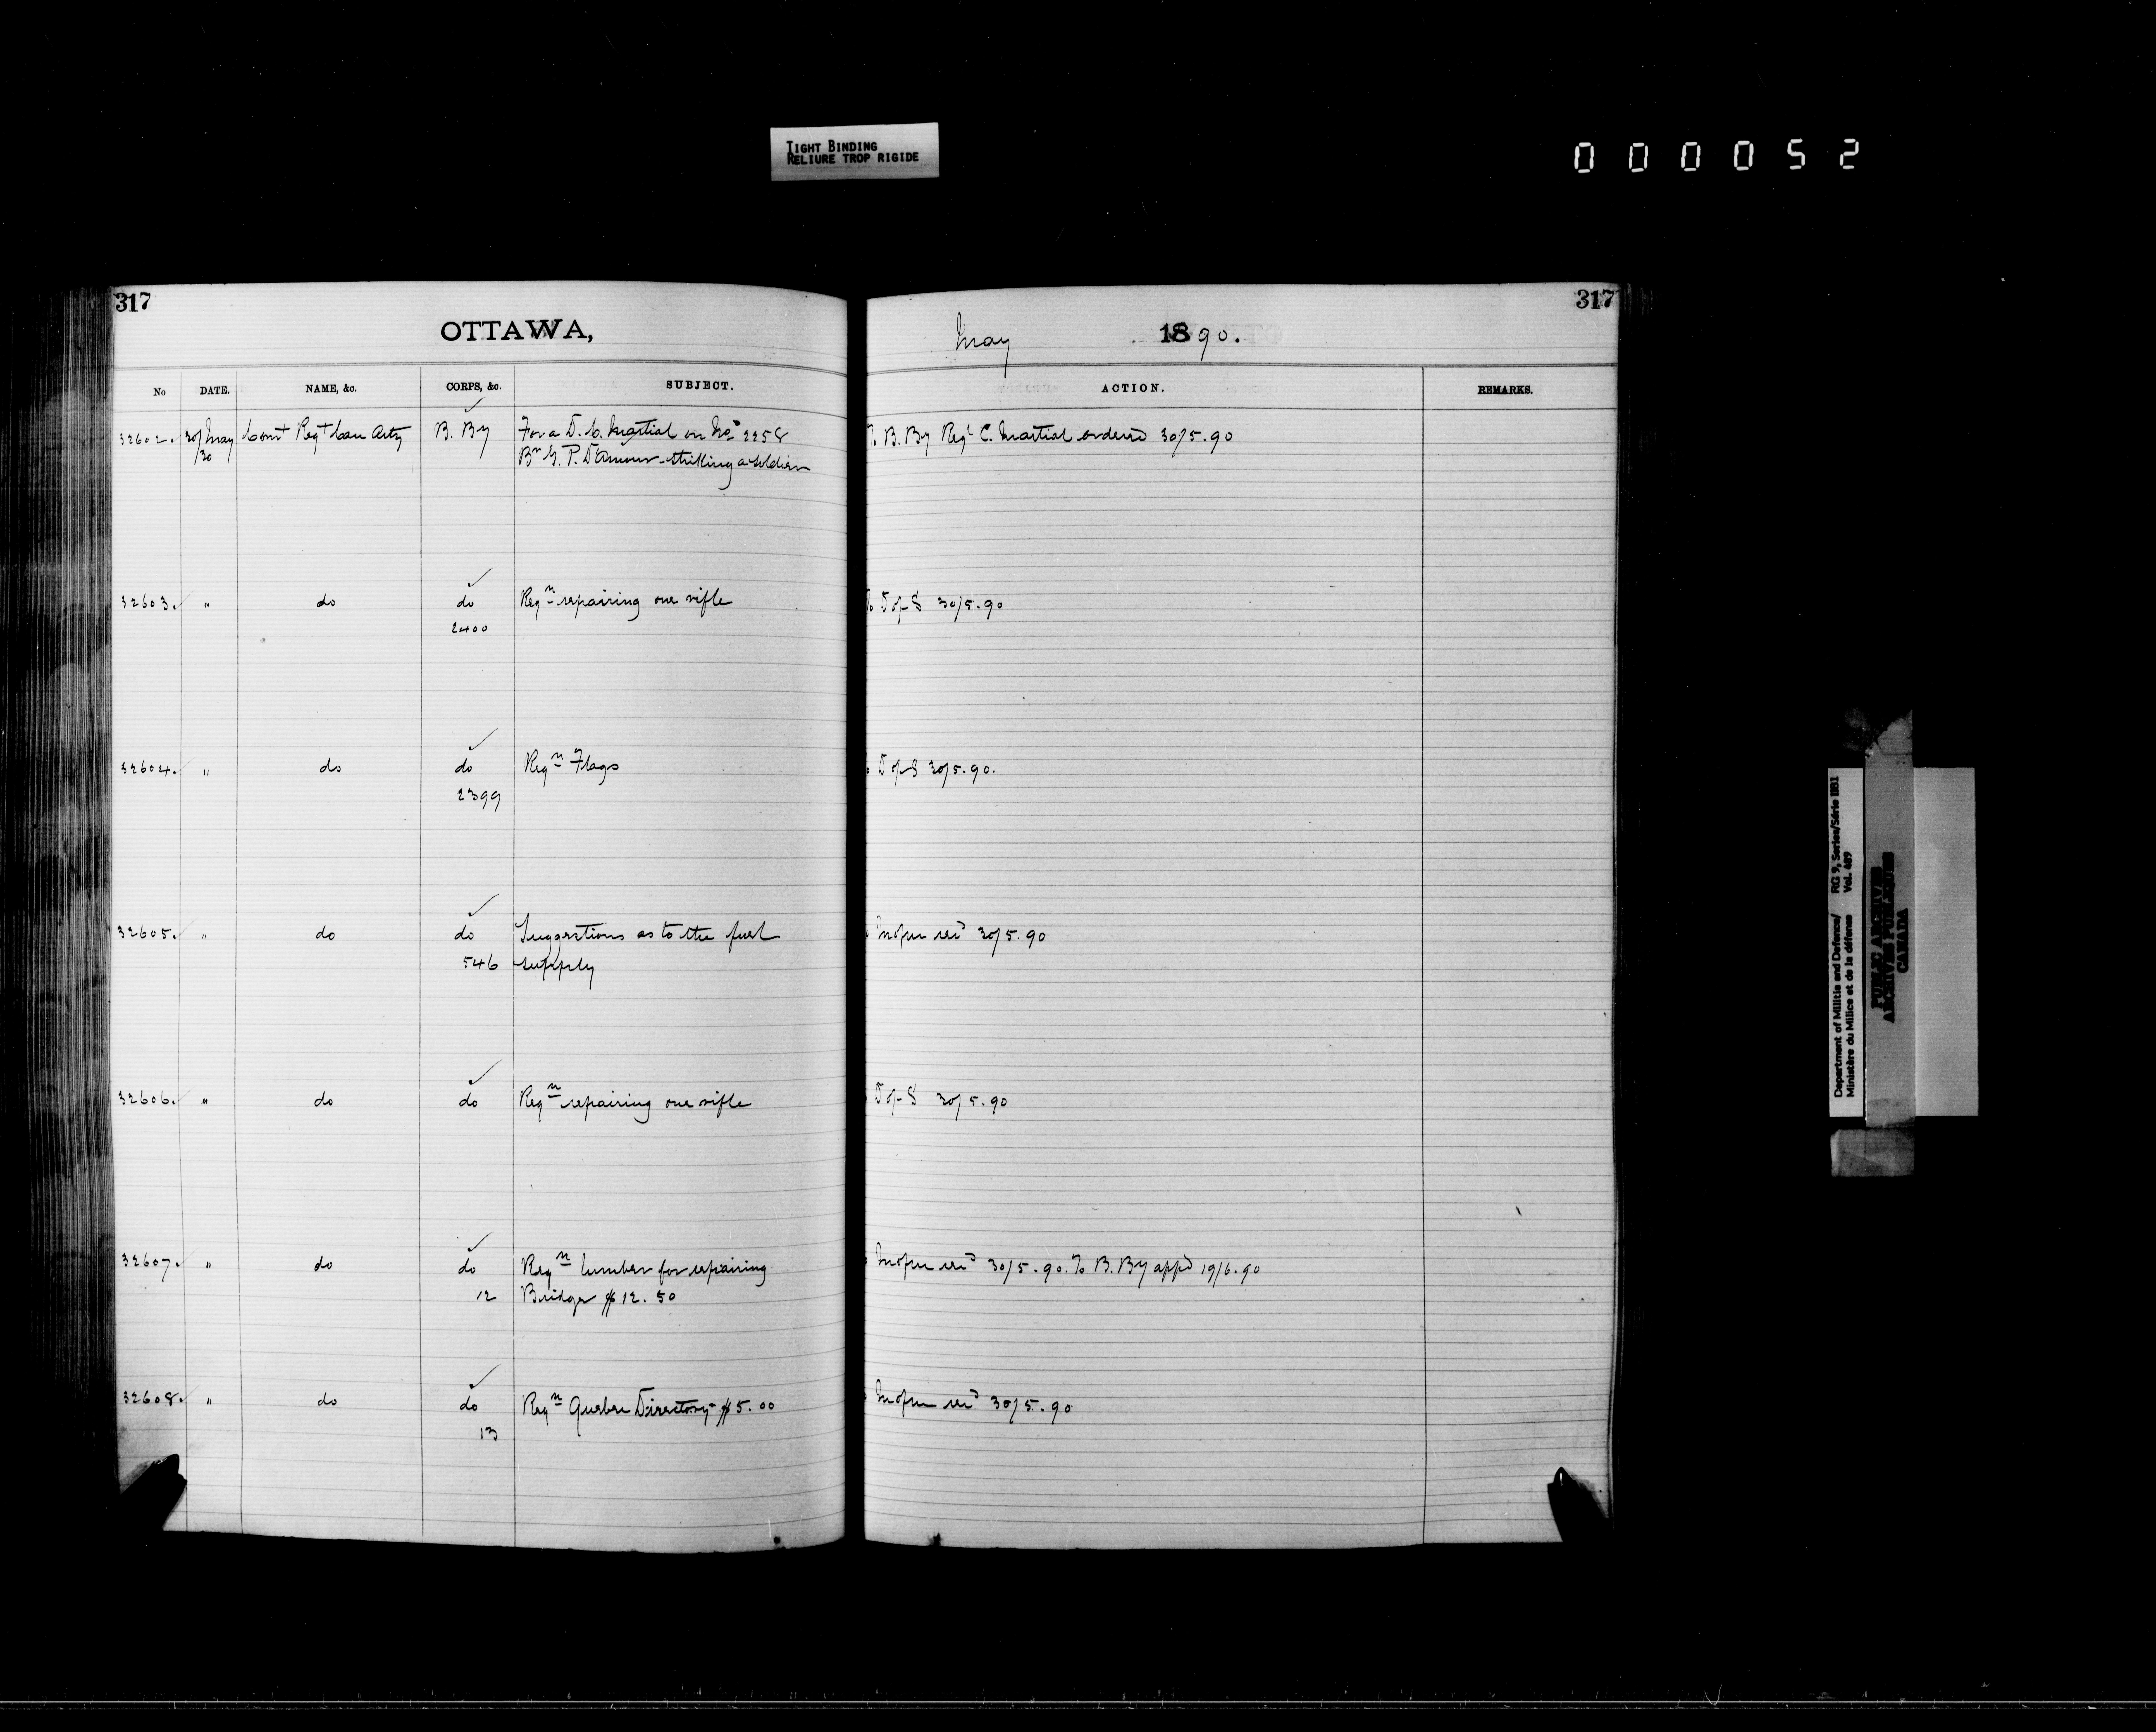 TIGHT BINDING
RELIURE TROP RIGIDE
000052
317
OTTAWA,
No DATE. NAME, &c. CORPS, &c. SUBJECT.
32602. 30/May Comt Regt Can Arty B. By For a D. C. Martial on No 2258
/30 Br G. P. D'Amour - striking a soldier
32603. " do do Reqn repairing one rifle
2400
32604. " do do Reqn Flags
2399
32605. " do do Suggestions as to the fuel
546 supply
32606. " do do Reqn repairing one rifle
32607. " do do Reqn lumber for repairing
12 Bridge $12.50
32608. " do do Reqn Quebec Directory $5.00
13
317
May 1890.
ACTION. REMARKS.
To B. By Regl C. Martial ordered 30/5.90
To D of S 30/5.90
D of S 30/5.90.
30/5.90
D of S 30/5.90
30/5.90. To B. By appd 19/6.90
30/5.90
Department of Militia and Defence/ RG 9, Series/Série IIB1
Ministère du Milice et de la défense Vol. 489
PUBLIC ARCHIVES
ARCHIVES PUBLIQUES
CANADA